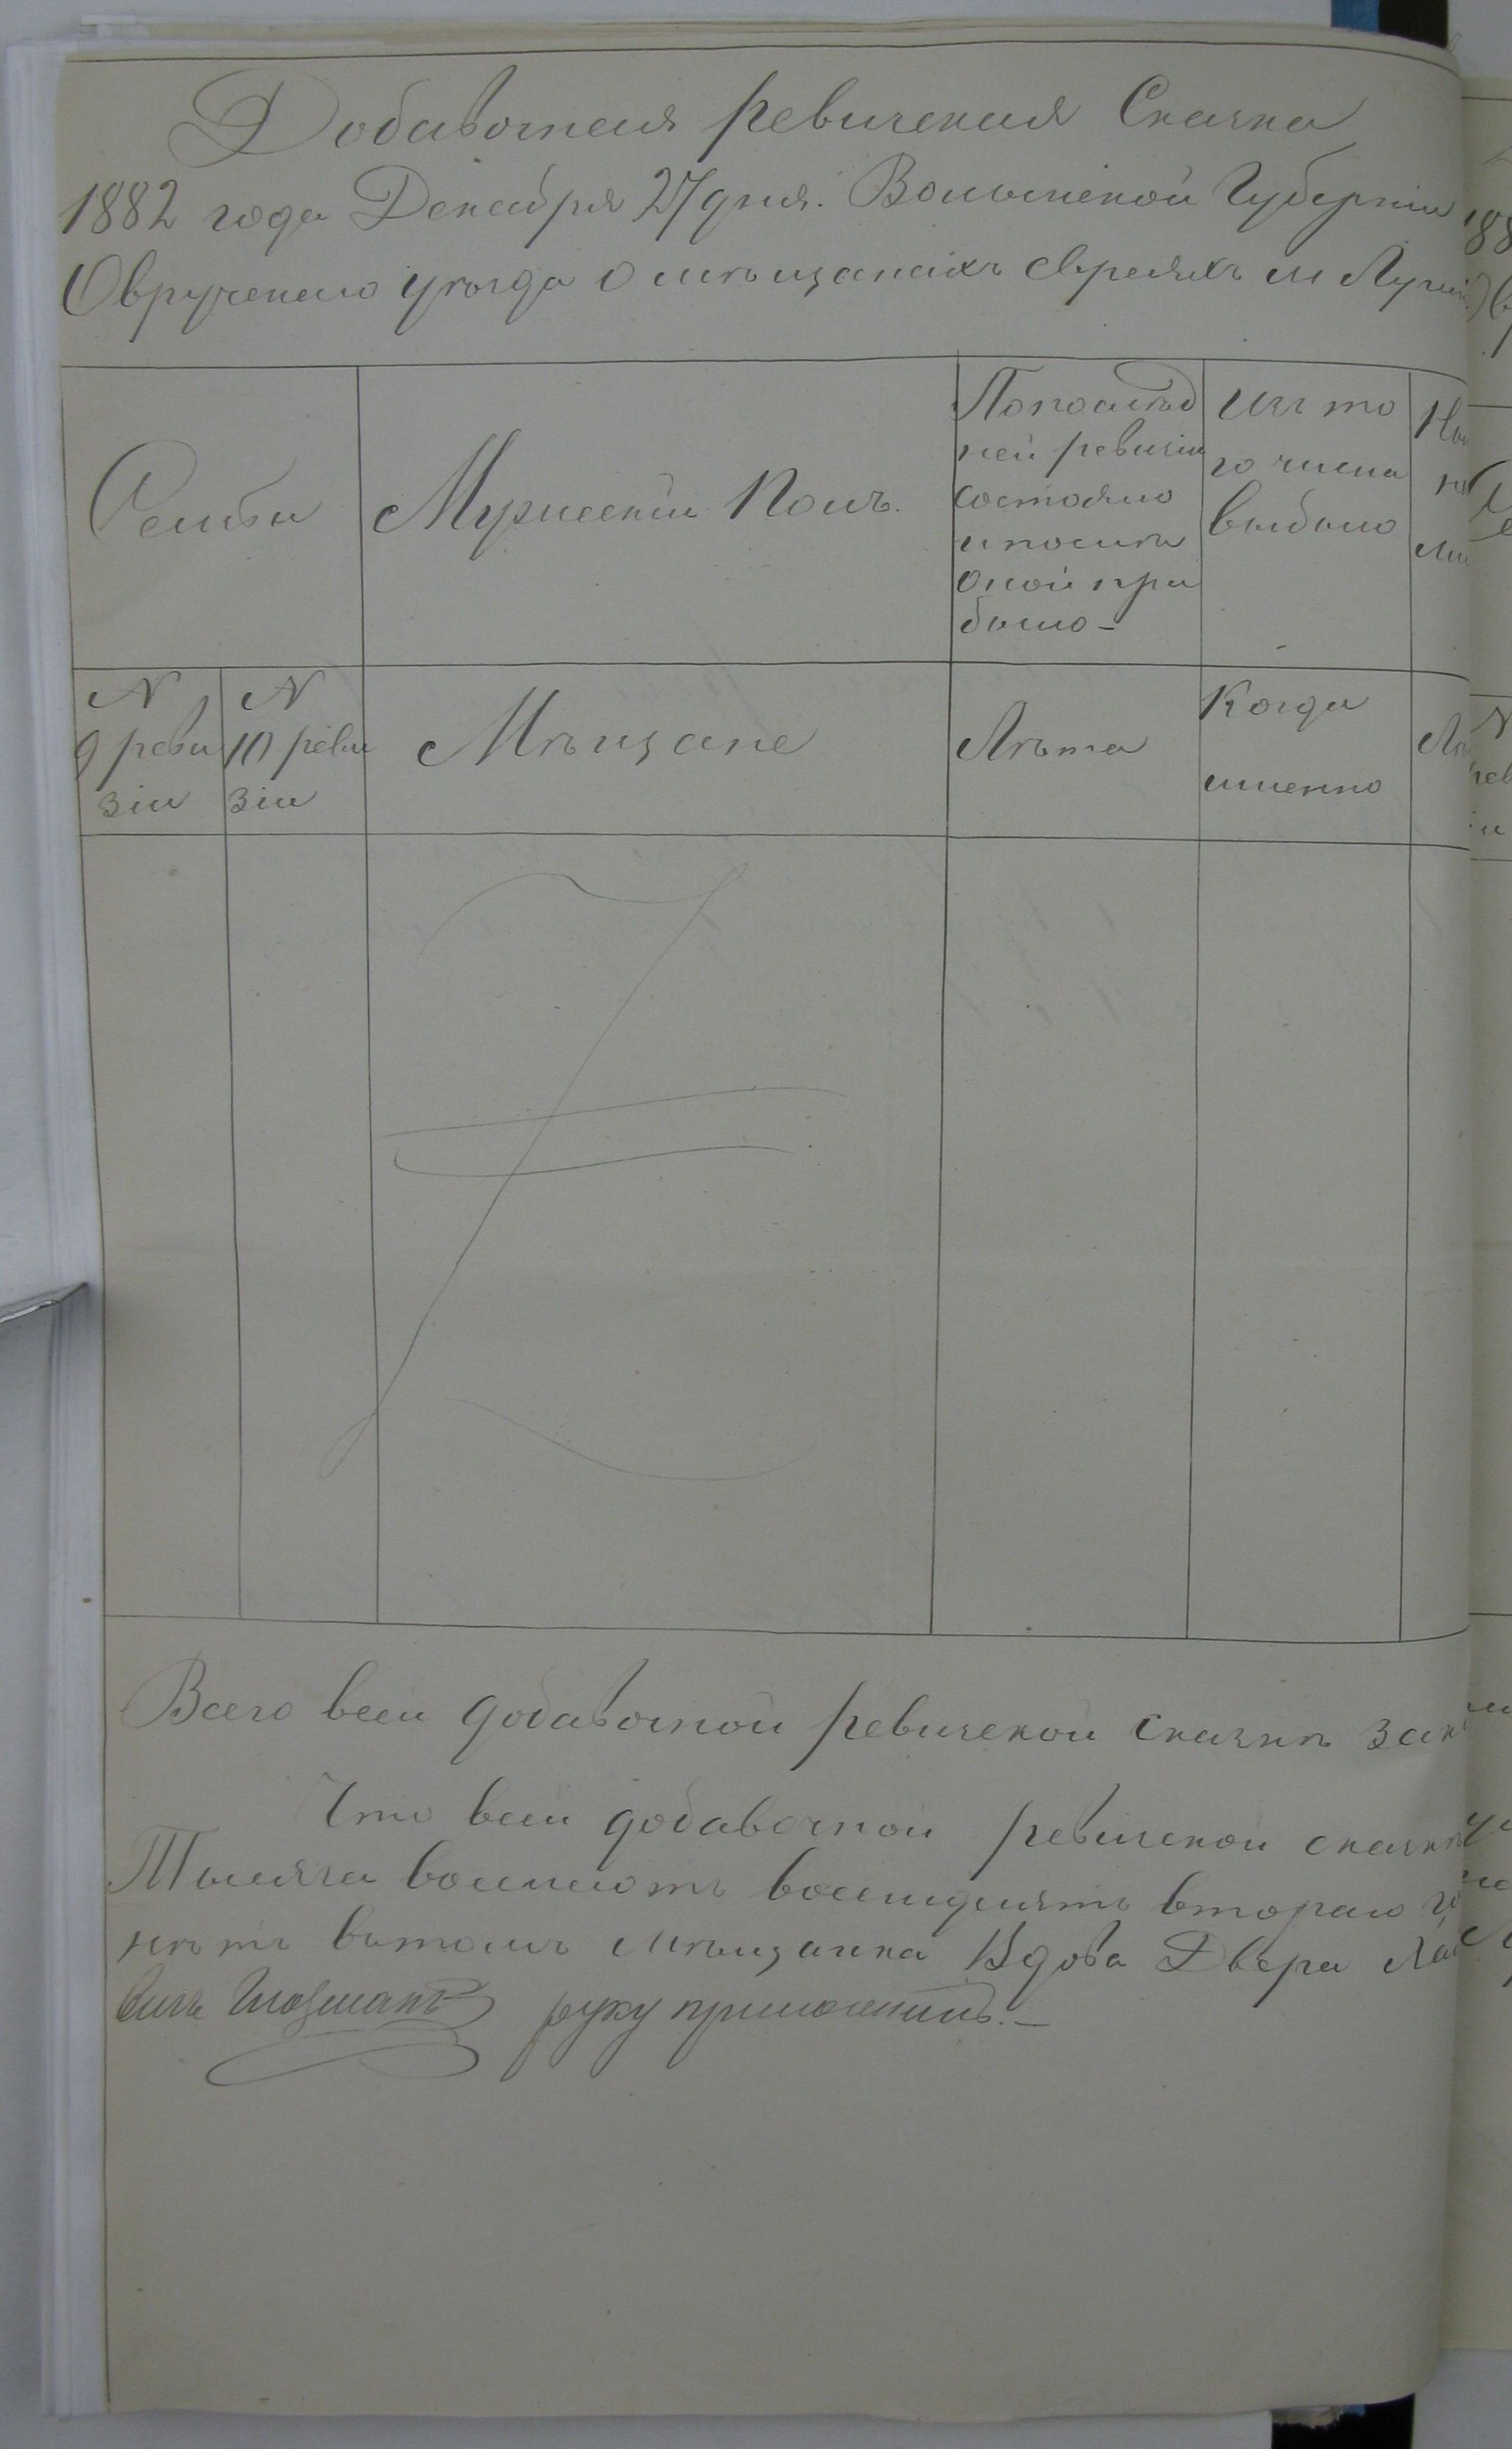 Добавочная ревизская Сказка
1882 года Декабря 27 дня. Волынской Губернии
Овручскаго уѣзда о мѣщанахъ евреяхъ м Лугин
Семьи
Мужескій Полъ.
По послѣд
ней ревизіи
состояло
и послѣ
оной при
было –
Изъ то
го числа
выбыло
N
9 реви
зіи
N
10 реви
зіи
Мѣщане
Лѣта
Когда
именно
Всего всей добавочной ревизской сказкѣ зак
Что всей добавочной ревизской сказкѣ
Тысяча восемьсотъ восемдисятъ втораго го
нѣтъ вътомъ мѣщанка Вдова Двера
руку приложилъ. –